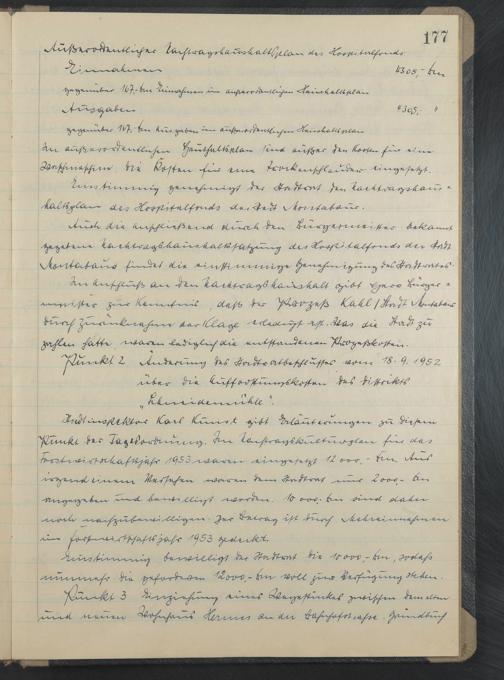 177
Außerordentlicher Nachtragshaushaltsplan des Hospitalfonds
Einnahmen 4305,- bm
gegenüber 107,- bm Einnahmen im außerordentlichen Haushaltsplan
Ausgaben 4305,- "
gegenüber 107,- bm Ausgaben im außerordentlichen Haushaltsplan
Im außerordentlichen Haushaltsplan sind außer den Kosten für eine
Waschmaschine die Kosten für eine Trockenschleuder eingesetzt.
Einstimmig genehmigt der Stadtrat den Nachtragshaus=
haltsplan des Hospitalfonds der Stadt Montabaur.
Auch die anschließend durch den Bürgermeister bekannt
gegebene Nachtragshaushaltssatzung des Hospitalfonds der Stadt
Montabaur findet die einstimmige Genehmigung des Stadtrates.
Im Anschluß an den Nachtragshaushalt gibt Herr Bürger=
meister zur Kenntnis, daß der Prozeß Kahl / Stadt Montabaur
durch Zurücknahme der Klage erledigt ist. Was die Stadt zu
zahlen hatte waren lediglich die entstandenen Prozeßkosten.
Punkt 2 Änderung des Stadtratbeschlusses vom 18.9.1952
über die Aufforstungskosten des Distrikts
„Schneidemühle".
Stadtinspektor Karl Kunst gibt Erläuterungen zu diesem
Punkt der Tagesordnung. Im Nachtragskulturplan für das
Forstwirtschaftsjahr 1953 waren eingesetzt 12 000,- bm. Aus
irgend einem Versehen waren dem Stadtrat nur 2000,- bm
angegeben und bewilligt worden. 10 000,- bm sind daher
noch nachzubewilligen. Der Betrag ist durch Mehreinnahmen
im Forstwirtschaftsjahr 1953 gedeckt.
Einstimmig bewilligt der Stadtrat die 10 000,- bm, sodaß
nunmehr die geforderten 12 000,- bm voll zur Verfügung stehen.
Punkt 3 Einziehung eines Wegestückes zwischen dem alten
und neuen Wohnhaus Hermes an der Bahnhofstrasse. Grundbuch